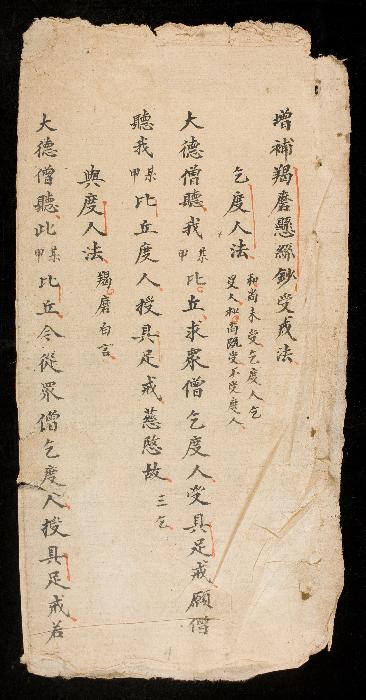 增補羯磨懸絲鈔受戒法
乞度人法
和尚未受乞度人乞
受大 尚既受不受度人
大德僧聽我某甲比丘求眾僧乞度人受具足戒願僧
聽我某甲比丘度人授具足戒慈愍故 三乞
與度人法 羯磨白言
大德僧聽此某甲比丘今從眾僧乞度人授具足戒若